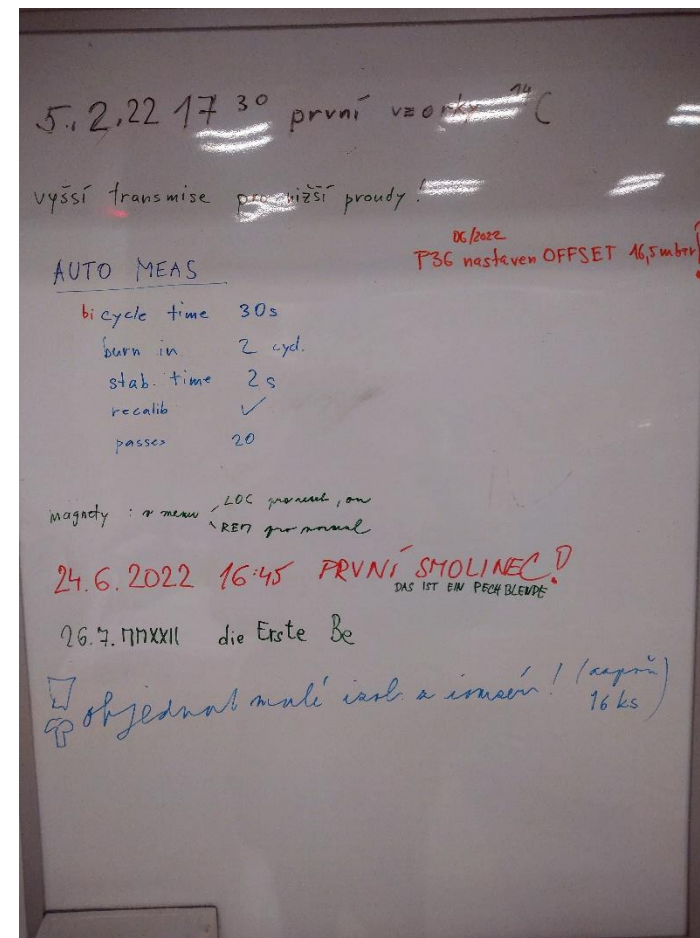 5.2.22 17 30 první vzorky 14C
vyšší transmise pro nižší proudy!
06/2022
P36 nastaven OFFSET 16,5 mbar!
AUTO MEAS
bicycle time 30s
burn in 2 cycl.
stab. time 2s
recalib ✓
passes 20
magnety : v menu LOC pro reset, on
REM pro normal
24.6.2022 16:45 PRVNÍ SMOLINEC!
DAS IST EIN PECHBLENDE
26.7.MMXXII die Erste Be
objednat malé izol. z! (aspoň
16 ks)